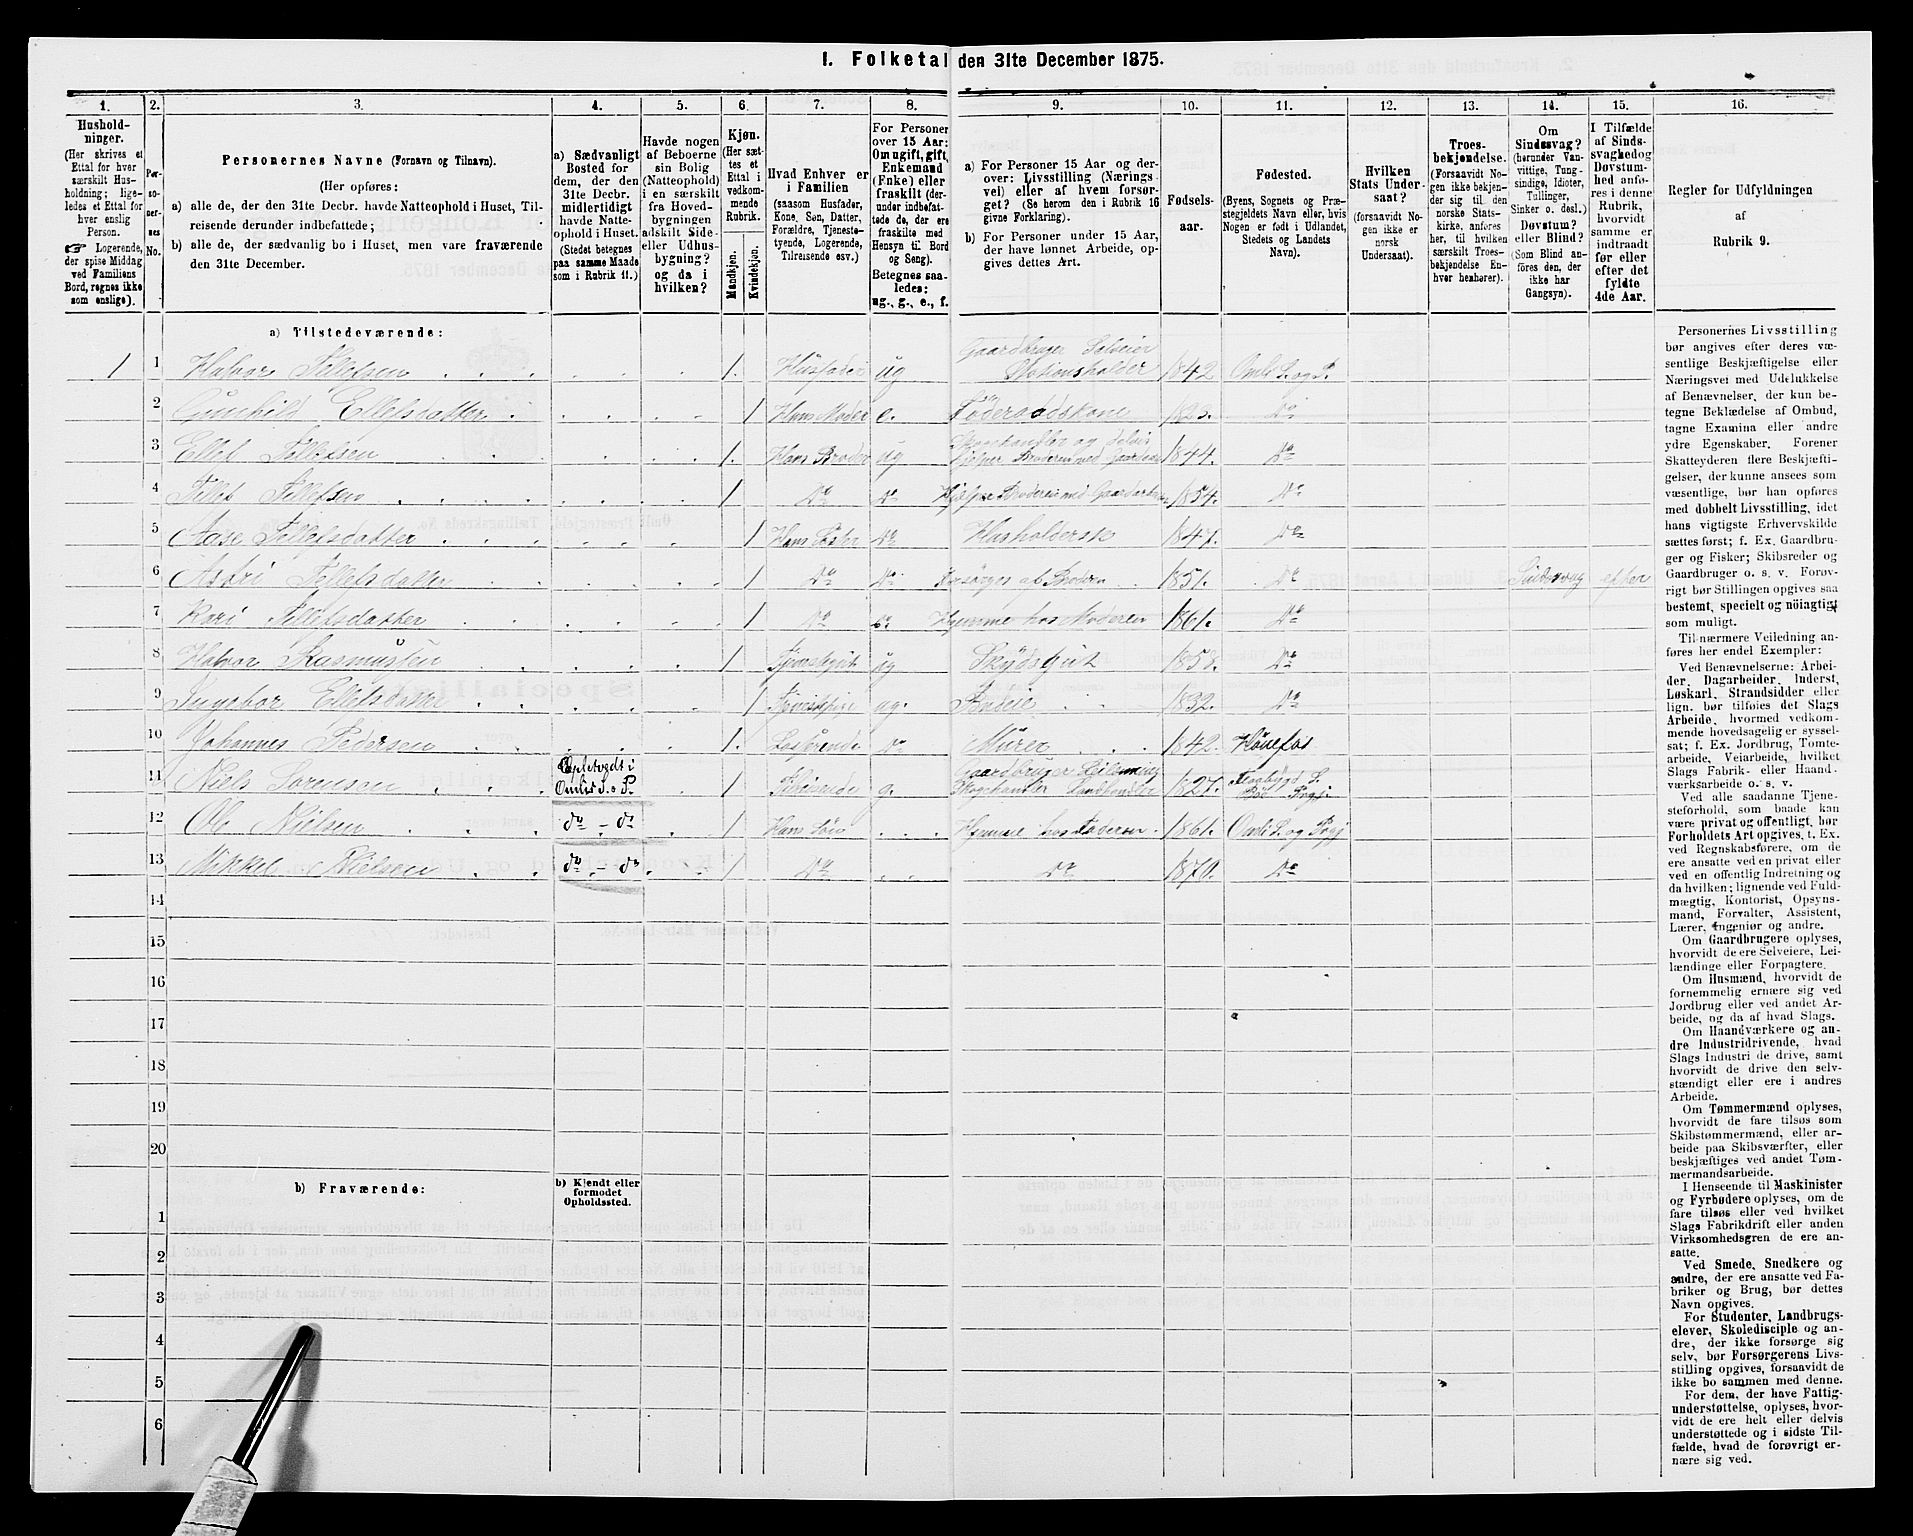 I. Folketal den 31te December 1875.
1. 2. 3. 4. 5. 6. 7. 8. 9. 10. 11. 12. 13. 14. 15. 16.
Hushold-
ninger.
(Her skrives et
Ettal for hver
særskilt Hus-
holdning; lige-
ledes et Ettal for
hver enslig
Person.
☞ Logerende,
der spise Middag
ved Familiens
Bord, regnes ikke
som enslige).
Per-
so-
ner-
nes
No.
Personernes Navne (Fornavn og Tilnavn).
(Her opføres:
a) alle de, der den 31te Decbr. havde Natteophold i Huset, Til-
reisende derunder indbefattede;
b) alle de, der sædvanlig bo i Huset, men vare fraværende
den 31te December.
a) Sædvanligt
Bosted for
dem, der den
31te Decbr.
midlertidigt
havde Natte-
ophold i Huset.
(Stedet betegnes
paa samme Maade
som i Rubrik 11.)
Havde nogen
af Beboerne
sin Bolig
(Natteophold)
i en særskilt
fra Hoved-
bygningen
adskilt Side-
eller Udhus-
bygning?
og da i
hvilken?
Kjøn.
(Her sæt-
tes et
Ettal i
vedkom-
mende
Rubrik.
Mandkjøn.
Kvindekjøn.
Hvad Enhver er
i Familien
(saasom Husfader,
Kone, Søn, Datter,
Forældre, Tjeneste-
tyende, Logerende,
Tilreisende osv.)
For Personer
over 15 Aar:
Om ugift, gift,
Enkemand
(Enke) eller
fraskilt (der-
under indbefat-
tede de, der ere
fraskilte med
Hensyn til Bord
og Seng).
Betegnes saa-
ledes:
ug., g., e., f.
a) For Personer 15 Aar og der-
over: Livsstilling (Nærings-
vei) eller af hvem forsør-
get? (Se herom den i Rubrik 16
givne Forklaring).
b) For Personer under 15 Aar,
der have lønnet Arbeide, op-
gives dettes Art.
Fødsels-
aar.
Fødested.
(Byens, Sognets og Præ-
stegjeldets Navn eller, hvis
Nogen er født i Udlandet,
Stedets og Landets
Navn).
Hvilken
Stats Under-
saat?
(forsaavidt No-
gen ikke er
norsk
Undersaat).
Troes-
bekjendelse.
(Forsaavidt No-
gen ikke bekjen-
der sig til den
norske Stats-
kirke, anføres
her, til hvilken
særskilt Troes-
bekjendelse En-
hver henhører).
Om
Sindssvag?
(herunder Van-
vittige, Tung-
sindige, Idioter,
Tullinger,
Sinker o. desl.)
Døvstum?
eller Blind?
(Som Blind an-
føres den, der
ikke har
Gangsyn).
I Tilfælde
af Sinds-
svaghed og
Døvstum-
hed anfø-
res i denne
Rubrik,
hvorvidt
samme er
indtraadt
før eller
efter det
fyldte
4de Aar.
Regler for Udfyldningen
af
Rubrik 9.
a) Tilstedeværende:
1 1 Halvor Tellefsen 1. Husfader ug Gaardbruger Selveier Stationsholder 1842 Omli S. og P.
2 Gunhild Ellefsdatter 1 Hans Moder e. Födersødskone 1823. Do
3 Ellef Tellefsen 1. Hans Broder ug Skoghandler og delvis Hjelper Broderen med Gaardsar 1844. Do
4 Tellef Tellefsen 1 Do Do Hjelper Broderen med Gaardsarb 1854. Do
5 Aase Tellefsdatter 1 Hans Søster Do Husholderske 1847. Do
6 Astri Tellefsdatter 1 Do Do Forsörges af Broderen 1851. Do Sindssvag efter
7 Kari Tellefsdatter 1 Do Do Hjemme hos Moderen 1861. Do
8 Halvor Rasmusen 1 Tjenstegut ug Skydsgut 1858. Do
9 Ingebor Ellefsdatter 1 Tjenstepige ug. Budeie 1832. Do
10 Johannes Pedersen 1. Losjerende Do Mürer 1842. Hönefos
11 Niels Sorensen Omlid S. o P. 1 Tilreisende g. Gaardbruger Leilending Skoghandler Landhandler 1827. Flaabygd S. Böe Prgj
12 Ole Nielsen do – do 1 Hans Sön Hjemme hos Faderen 1861. Omli S. og Prgj
13 Mikkel Nielsen do – do 1 Do Do 1870. Do
14
15
16
17
18
19
20
b) Fraværende:
b) Kjendt eller
formodet
Opholdssted.
1
2
3
4
5
6
Personernes Livsstilling
bør angives efter deres væ-
sentlige Beskjæftigelse eller
Næringsvei med Udelukkelse
af Benævnelser, der kun be-
tegne Beklædelse af Ombud,
tagne Examina eller andre
ydre Egenskaber. Forener
Skatteyderen flere Beskjæfti-
gelser, der kunne ansees som
væsentlige, bør han opføres
med dobbelt Livsstilling, idet
hans vigtigste Erhvervskilde
sættes først; f. Ex. Gaardbru-
ger og Fisker; Skibsreder og
Gaardbruger o. s. v. Forøv-
rigt bør Stillingen opgives saa
bestemt, specielt og nöiagtigt
som muligt.
Til nærmere Veiledning an-
føres her endel Exempler:
Ved Benævnelserne: Arbei-
der, Dagarbeider, Inderst,
Løskarl, Strandsidder eller
lign. bør tilføies det Slags
Arbeide, hvormed vedkom-
mende hovedsagelig er syssel-
sat; f. Ex. Jordbrug, Tomte-
arbeide, Veiarbeide, hvilket
Slags Fabrik- eller Haand-
værksarbeide o. s. v.
Ved alle saadanne Tjene-
steforhold, som baade kan
være privat og offentligt, bør
Forholdets Art opgives, t. Ex.
ved Regnskabsførere, om de
ere ansatte ved en privat eller
ved en offentlig Indretning og
da hvilken; lignende ved Fuld-
mægtig, Kontorist, Opsyns-
mand, Forvalter, Assistent,
Lærer, Ingeniør og andre.
Om Gaardbrugere oplyses,
hvorvidt de ere Selveiere, Lei-
lændinge eller Forpagtere.
Om Husmænd, hvorvidt de
fornemmelig ernære sig ved
Jordbrug eller ved andet Ar-
beide, og da af hvad Slags.
Om Haandværkere og an-
dre Industridrivende, hvad
Slags Industri de drive, samt
hvorvidt de drive den selv-
stændigt eller ere i andres
Arbeide.
Om Tømmermænd oplyses,
hvorvidt de fare tilsøs som
Skibstømmermænd, eller ar-
beide paa Skibsværfter, eller
beskjæftiges ved andet Tøm-
mermandsarbeide.
I Henseende til Maskinister
og Fyrbødere oplyses, om de
fare tilsøs eller ved hvilket
Slags Fabrikdrift eller anden
Virksomhedsgren de ere an-
satte.
Ved Smede, Snedkere og
andre, der ere ansatte ved Fa-
briker og Brug, bør dettes
Navn opgives.
For Studenter, Landbrugs-
elever, Skoledisciple og an-
dre, der ikke forsørge sig
selv, bør Forsørgerens Livs-
stilling opgives, forsaavidt de
ikke bo sammen med denne.
For dem, der have Fattig-
understøttelse, oplyses, hvor-
vidt de ere helt eller delvis
understøttede og i sidste Til-
fælde, hvad de forøvrigt er-
nære sig ved.